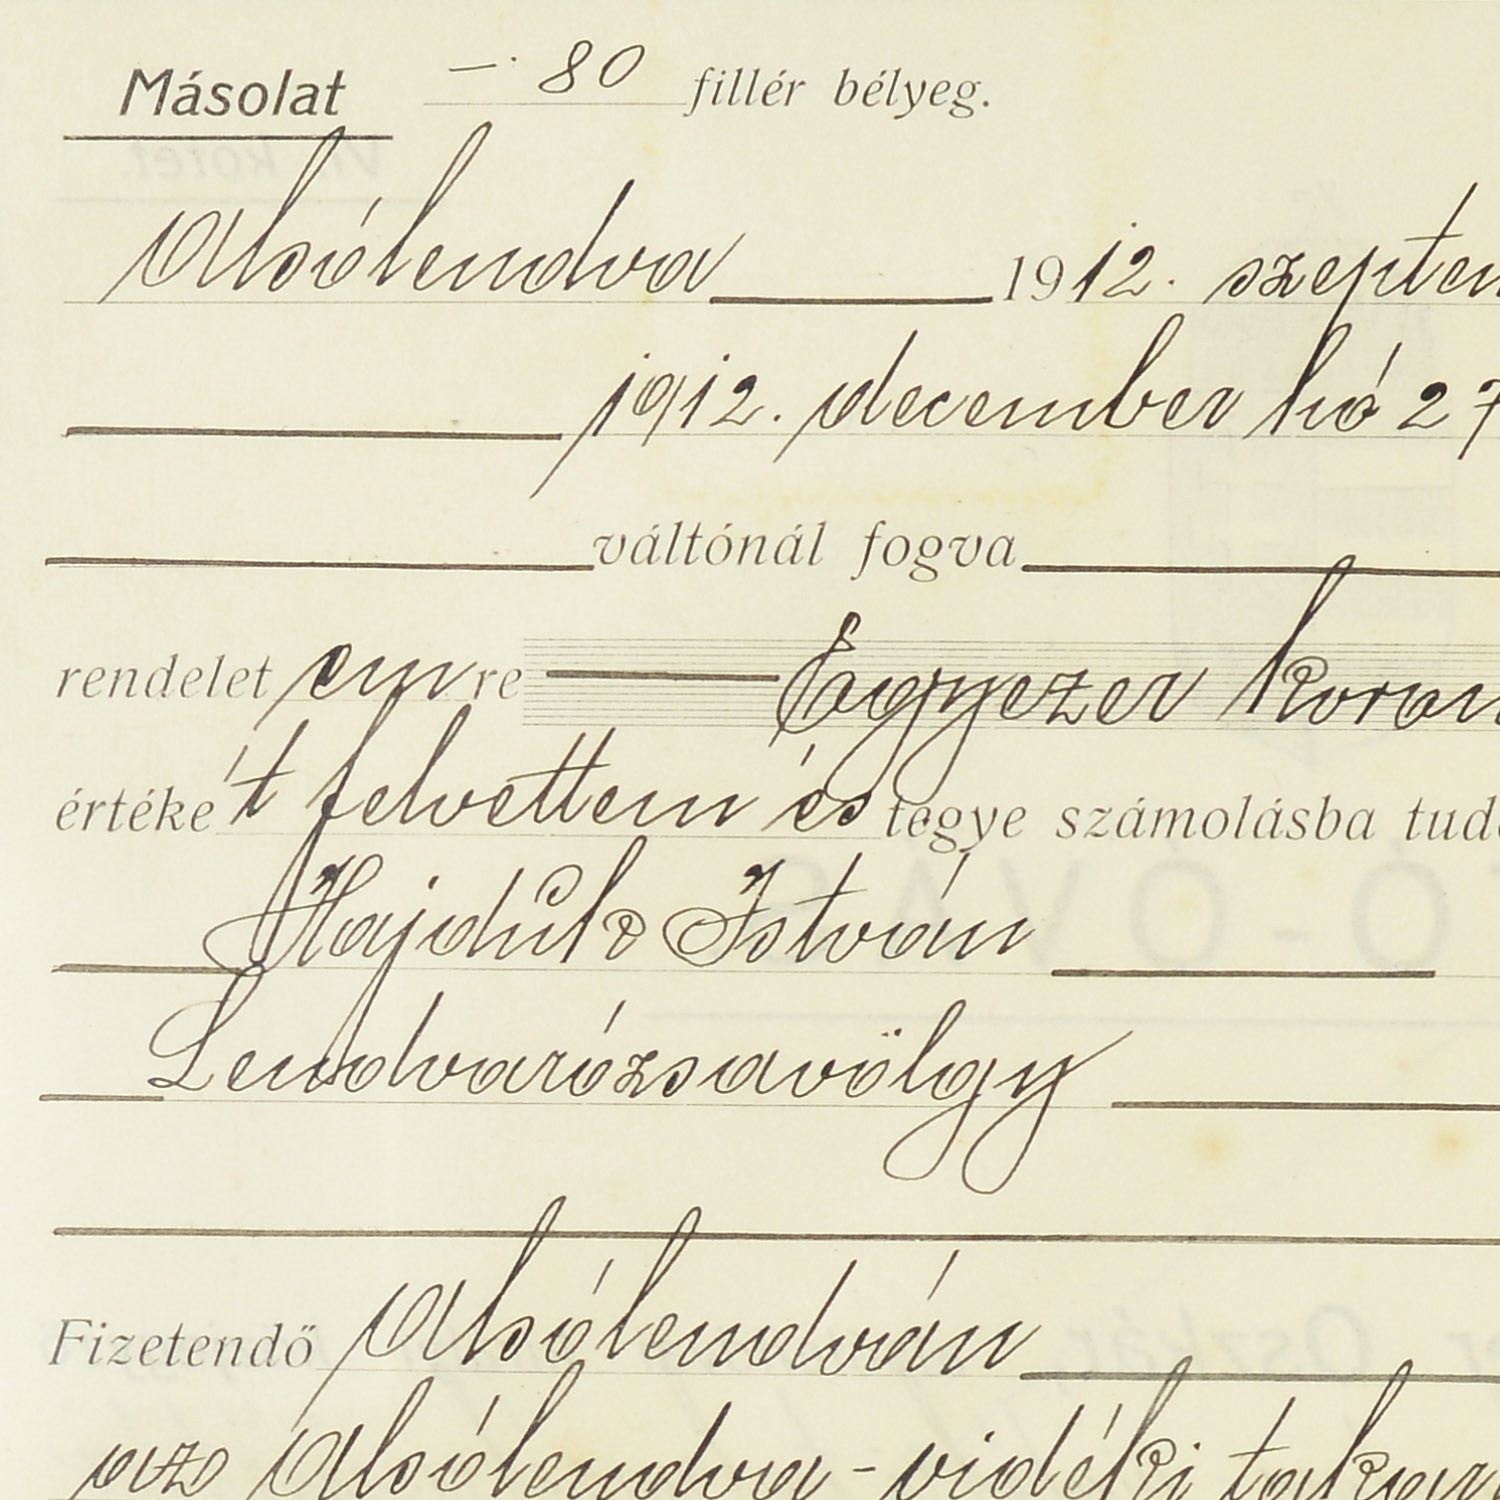 Másolat —· 80 fillér bélyeg.
Alsólendva 1912. szeptem
1912. december hó 27
váltónál fogva
rendelet em re Egyezer koron
értéke't felvettem és tegye számolásba tud
Hajduk István
Lendvarózsavölgy
Fizetendő Alsólendván
az Alsólendva-vidéki takar